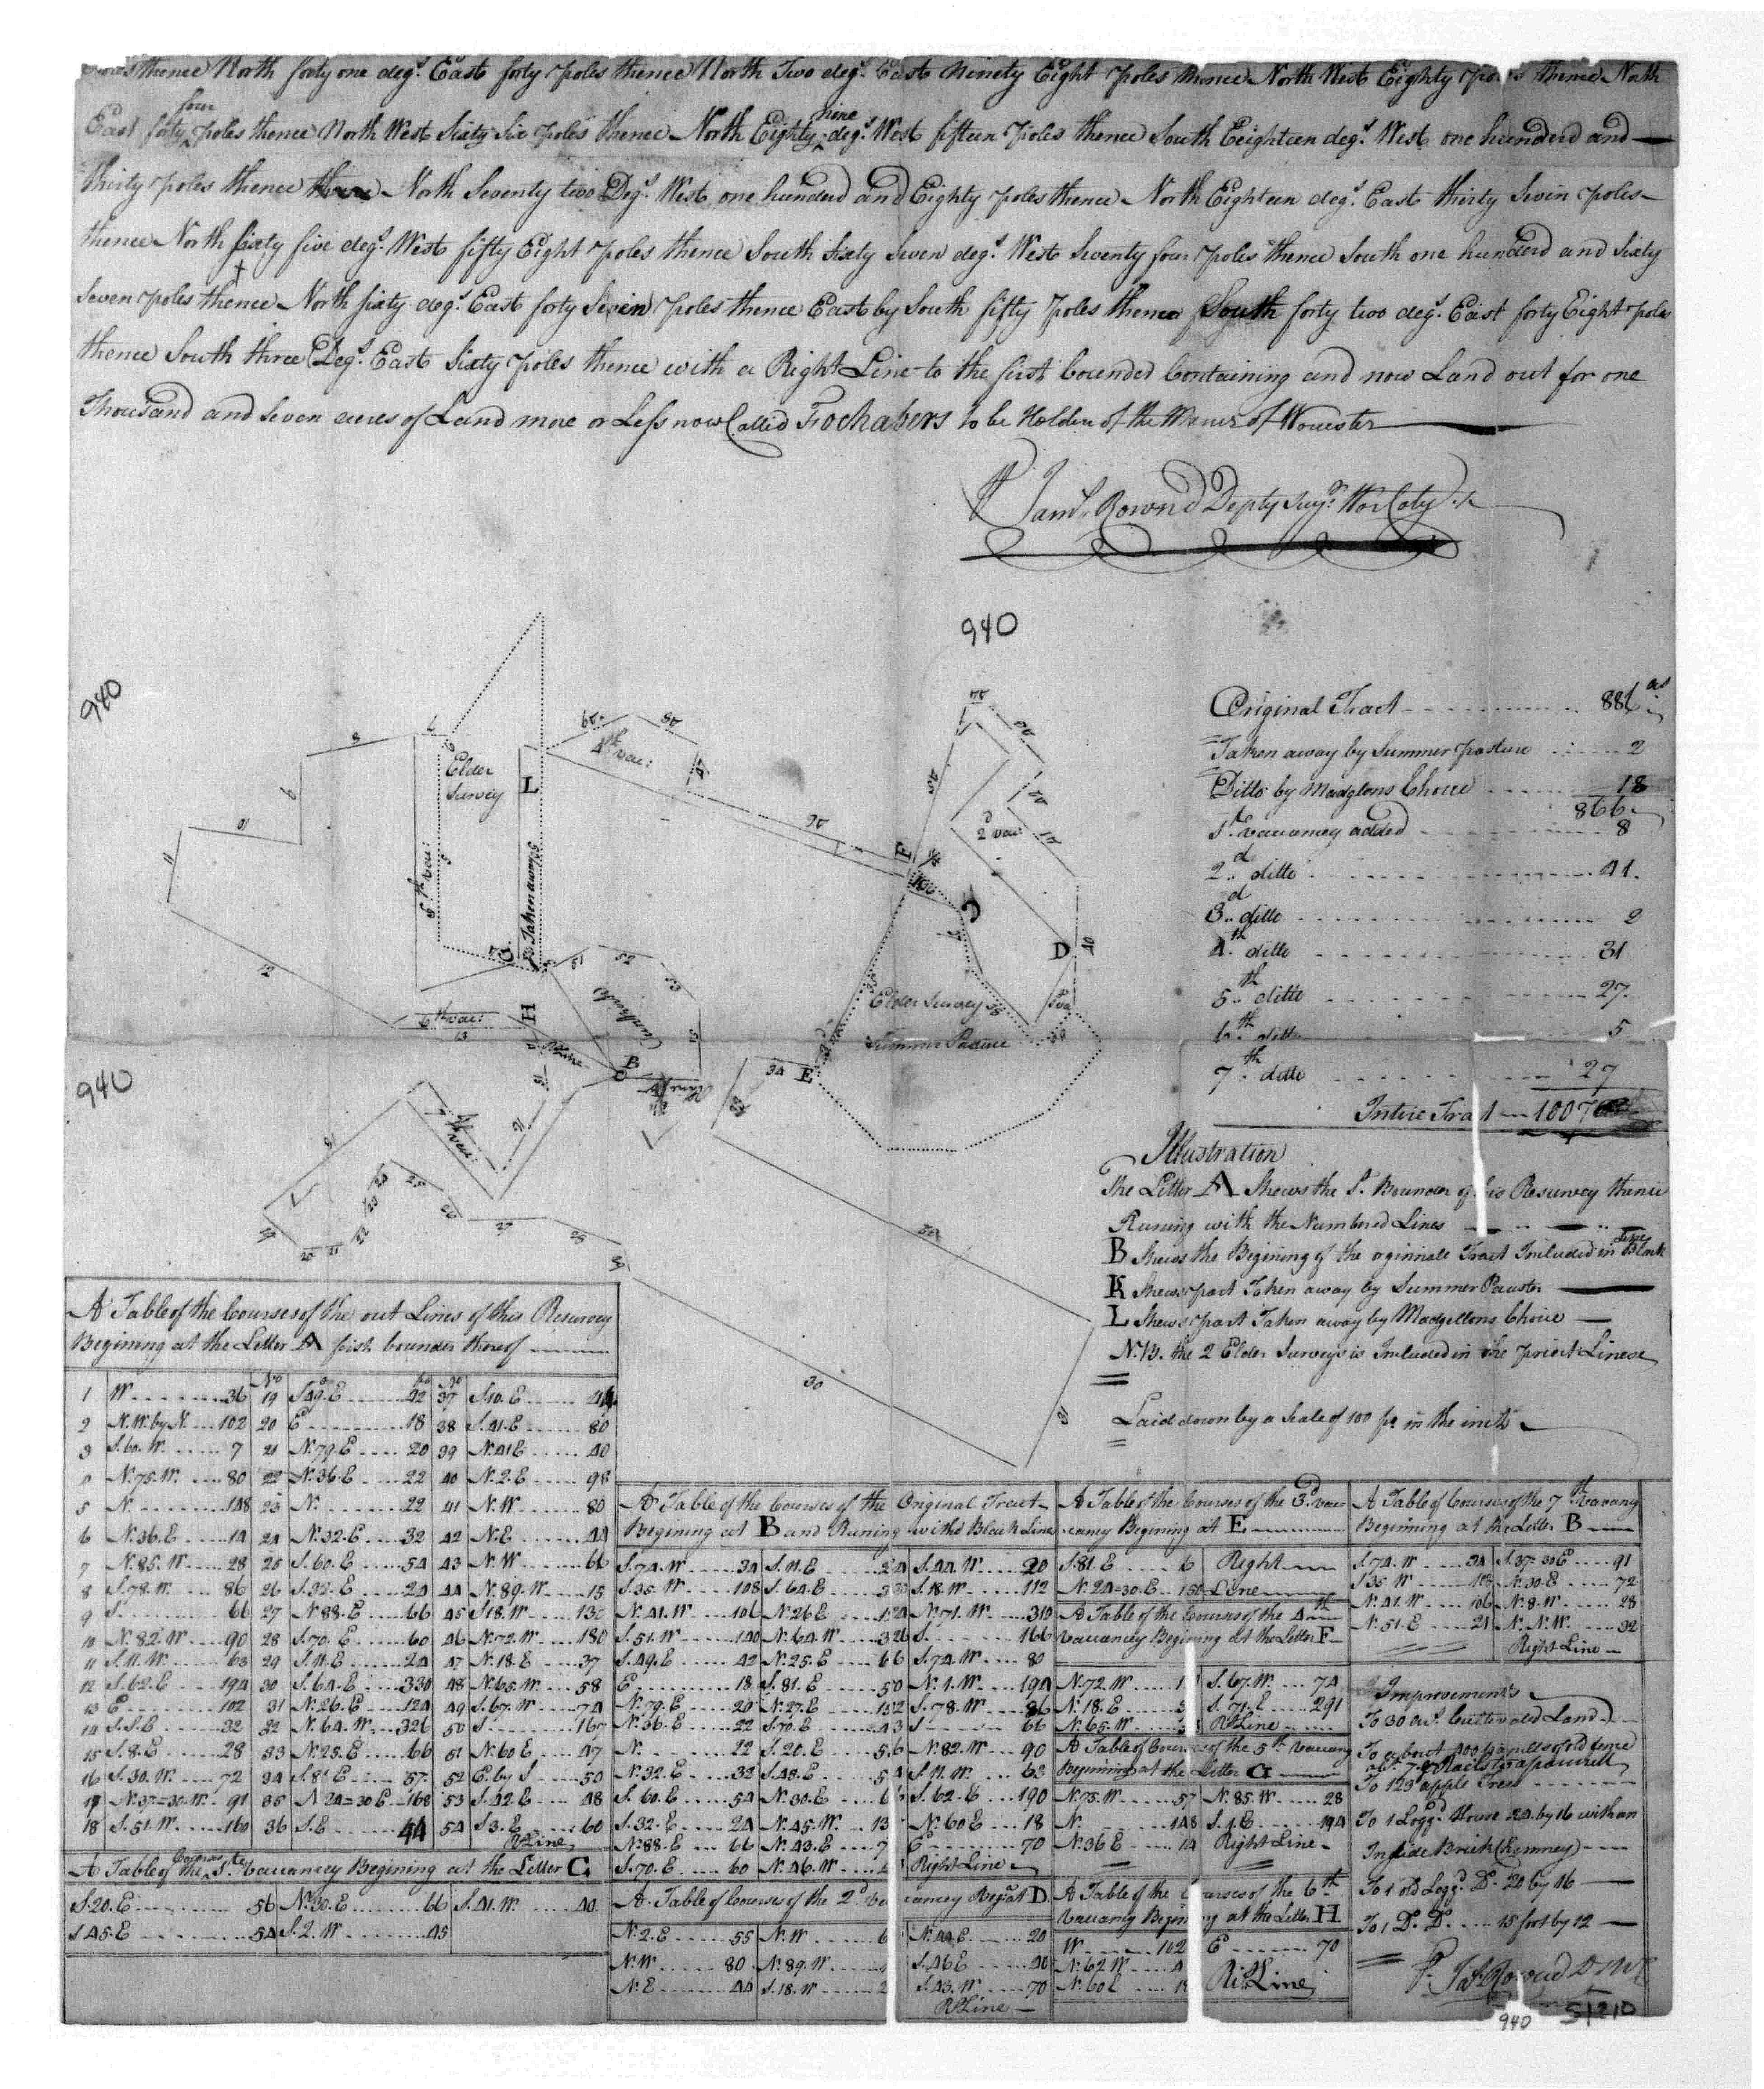 thence North forty one degs. East forty poles thence North Two degs. East Ninety Eight poles thence North West Eighty poles thence North
East forty four poles thence North West Sixty Six poles thence North Eighty nine degs. West fifteen poles thence South Eighteen degs. West one hunderd and
thirty poles thence North Seventy two Degs. West one hunderd and Eighty poles thence North Eighteen degs. East thirty Seven poles
thence North Sixty five degs. West fifty Eight poles thence South Sixty Seven degs. West Seventy four poles thence South one hunderd and Sixty
Seven poles thence North Sixty degs. East forty Seven poles thence East by South fifty poles thence South forty two degs. East forty Eight poles
thence South three Degs. East Sixty poles thence with a Right Line to the first bounder Containing and now Land out for one
Thousand and Seven acres of Land more or Less now Called Fochabers to be Holden of the Manor of Worcester
940
940
940
Original Tract 886 as
Taken away by Summer pasture 2
Ditto by Madglons Choice 18
866
1st vacancy added 8
2d ditto 41.
3d ditto 2
4th ditto 31
5th ditto 27.
6th ditto 5
7th ditto 27
Intire Tract 1007
Elder Survey
5th vac:
Taken away
L
4th vac:
F
2d vac:
D
C
K
G
H
6th vac:
B
Elder Survey
Summer Pasture
E
Illustration
The Letter A Shews the 1st. Bounder of this Resurvey thence
Runing with the Numbered Lines
B Shews the Begining of the orginall Tract Included in Black Lines
K Shews part Taken away by Summer Pauster
L Shews part Taken away by Madgellons Choice
N.B. the 2 Elder Surveys is Included in the prickt Lines
Laid down by a Scale of 100 ps. in the inch
A Table of the Courses of the out Lines of this Resurvey
Begining at the Letter A first bounder thereof
1 W 36 19 S49.E 22 37 S10.E 44
2 N.W.by N. 102 20 E 18 38 S.41.E 80
3 S.60.W. 7 21 N.79.E 20 39 N.41E 40
4 N.75.W. 80 22 N.36.E 22 40 N.2.E 98
5 N. 148 23 N. 22 41 N.W 80
6 N.36.E 14 24 N.32.E 32 42 N.E 44
7 N.85.W 28 25 S.60.E 54 43 N.W 66
8 S.78.W. 86 26 S.32.E 24 44 N.89.W 15
9 S. 66 27 N88.E 66 45 S18.W 130
10 N.82.W 90 28 S.70.E 60 46 N.72.W 180
11 S.11.W. 63 29 S.11.E 24 47 N.18.E 37
12 S.62.E 194 30 S.64.E 330 48 N.65.W 58
13 E 102 31 N.26.E 124 49 S.67.W 74
14 S.S.E 32 32 N.64.W 326 50 S 167
15 S.8.E 28 33 N.25.E 66 51 N.60E 47
16 S.30.W. 72 34 S.81E 57. 52 E.by S 50
17 N.37=30.W. 91 35 N24=30E 168 53 S.42E 48
18 S.51.W. 160 36 S.E 44 54 S3.E 60
Rt Line
A Table of the Courses 1st Vacancey Begining at the Letter C
S.20.E 56 N.30.E 66 S.41.W. 40
S45.E 54 S.2.W 45
A Table of the Courses of the Original Tract
Begening at B and Runing with Black Line
S.74.W 34 S.11.E 24 S.44.W. 20
S.35.W 108 S.64.E 330 S.18.W 112
N.41.W 106 N.26E 124 N.71.W. 310
S.51.W 140 N.64.W 326 S. 166
S.49.E 42 N.25.E 66 S.74.W 80
E 18 S.81.E 50 N.1.W. 194
N.79.E 20 N.27.E 152 S.78.W 86
N.36.E 22 S.70.E 43 S 66
N. 22 S.20.E 56 N.82.W 90
N.32.E 32 S.48.E 54 S.11.W. 63
S.60.E 54 N.30.E S.62.E 190
S.32.E 24 N.45.W. N.60E 18
N.88.E 66 N.43.E E 70
S.70.E 60 N.46.W Right Line
A Table of Courses of the 2d Vacancey Begn at D
N.2.E 55 N.W N.44E 20
N.W 80 N.89.W S.46E 40
N.E 44 S.18.W S.43.W 70
Rt Line
A Table of the Courses of the 3d vacancey Begining at E
S.81.E 6 Right
N.24=30.E 150 Line
A Table of the Courses of the 4th
Vacancey Begining at the Letter F
N.72.W S.67.W. 74
N.18.E S.71.E 291
N.65.W Rt Line
A Table of Courses of the 5th Vacancy
Begening at the Letter G
N.75.W 57 N.85.W 28
N. 148 S.1.E 194
N.36E 14 Right Line
A Table of the Courses of the 6th
Vacancy Begining at the Letter H
W 102 E 70
N.62W Rt. Line
N.60E
A Table of Courses of the 7th Vacancy
Begining at the Letter B
S.74.W 34 S.37=30E 91
S35W 108 N.30.E 72
N.41.W 106 N.8.W 28
N.51.E 21 N.N.W. 32
Right Line
Improvements
To 30 as. Cultivated Land
To 123 apple Trees
To 1 Loggd. House 24 by 16 with an
Inside Brick Chimney
To 1 old Loggd. Do. 20 by 16
To 1 Do. Do. 15 foot by 12
940